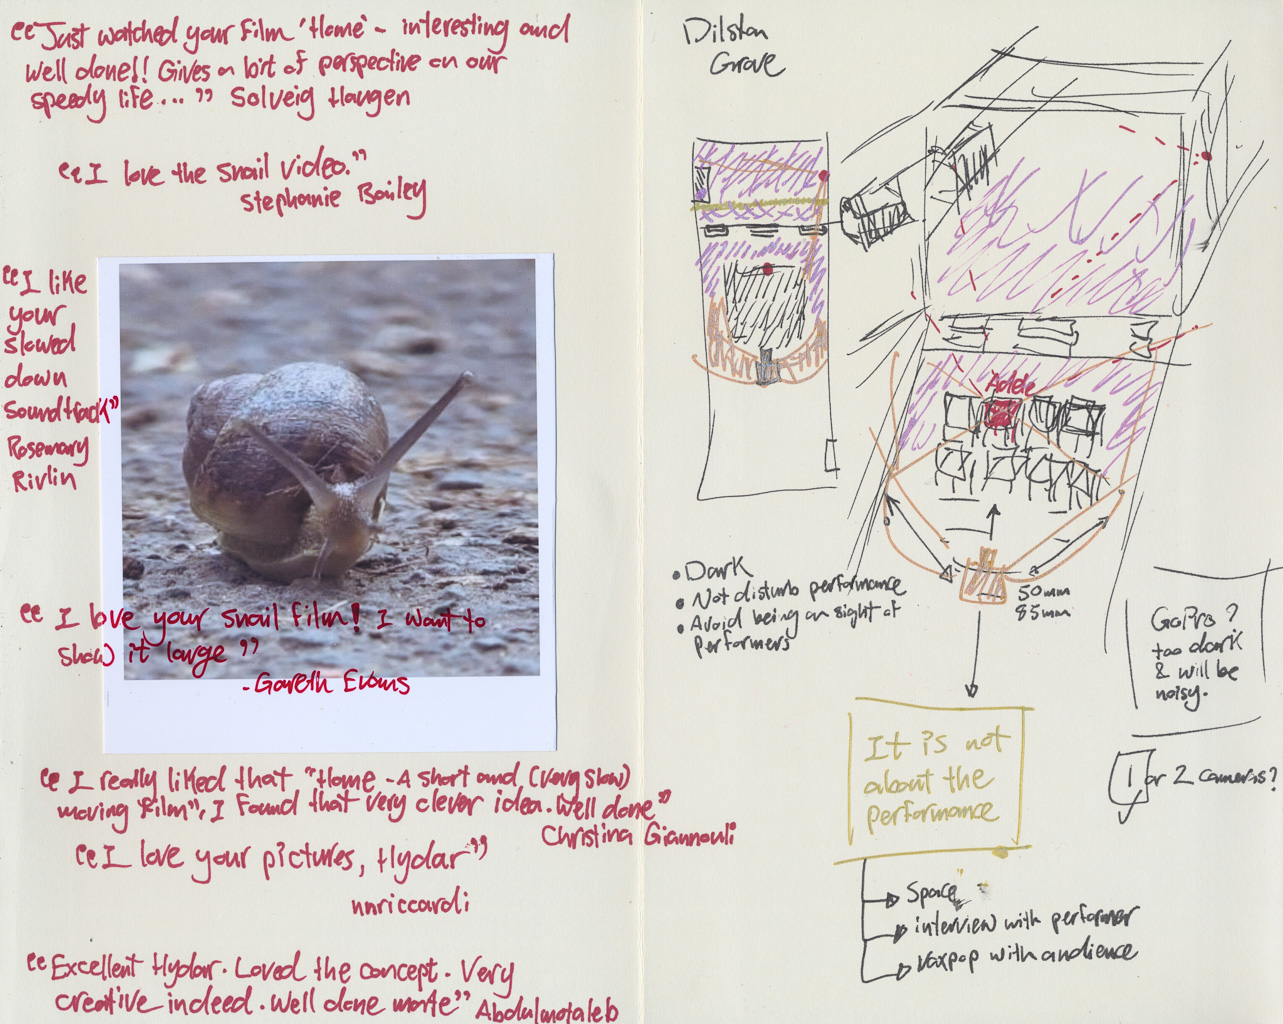 “Just watched your film 'Home' - interesting and
well done!! Gives a bit of perspective on our
speedy life...” Solveig Haugen
“I love the snail video.”
Stephanie Bailey
“I like
your
slowed
down
soundtrack”
Rosemary
Rivlin
“I love your snail film! I want to
show it large”
- Gareth Evans
“I really liked that "Home - A short and (very slow)
moving film", I found that very clever idea. Well done”
Christina Giannouli
“I love your pictures, Hydar”
nnriccardi
“Excellent Hydar. Loved the concept. Very
creative indeed. Well done mate” Abdulmotaleb
Dilston
Grove
Adele
• Dark
• Not disturb performance
• Avoid being on sight of
performers
50mm
85mm
GoPro?
too dark
& will be
noisy.
1 or 2 cameras?
It is not
about the
performance
Space
interview with performer
voxpop with audience